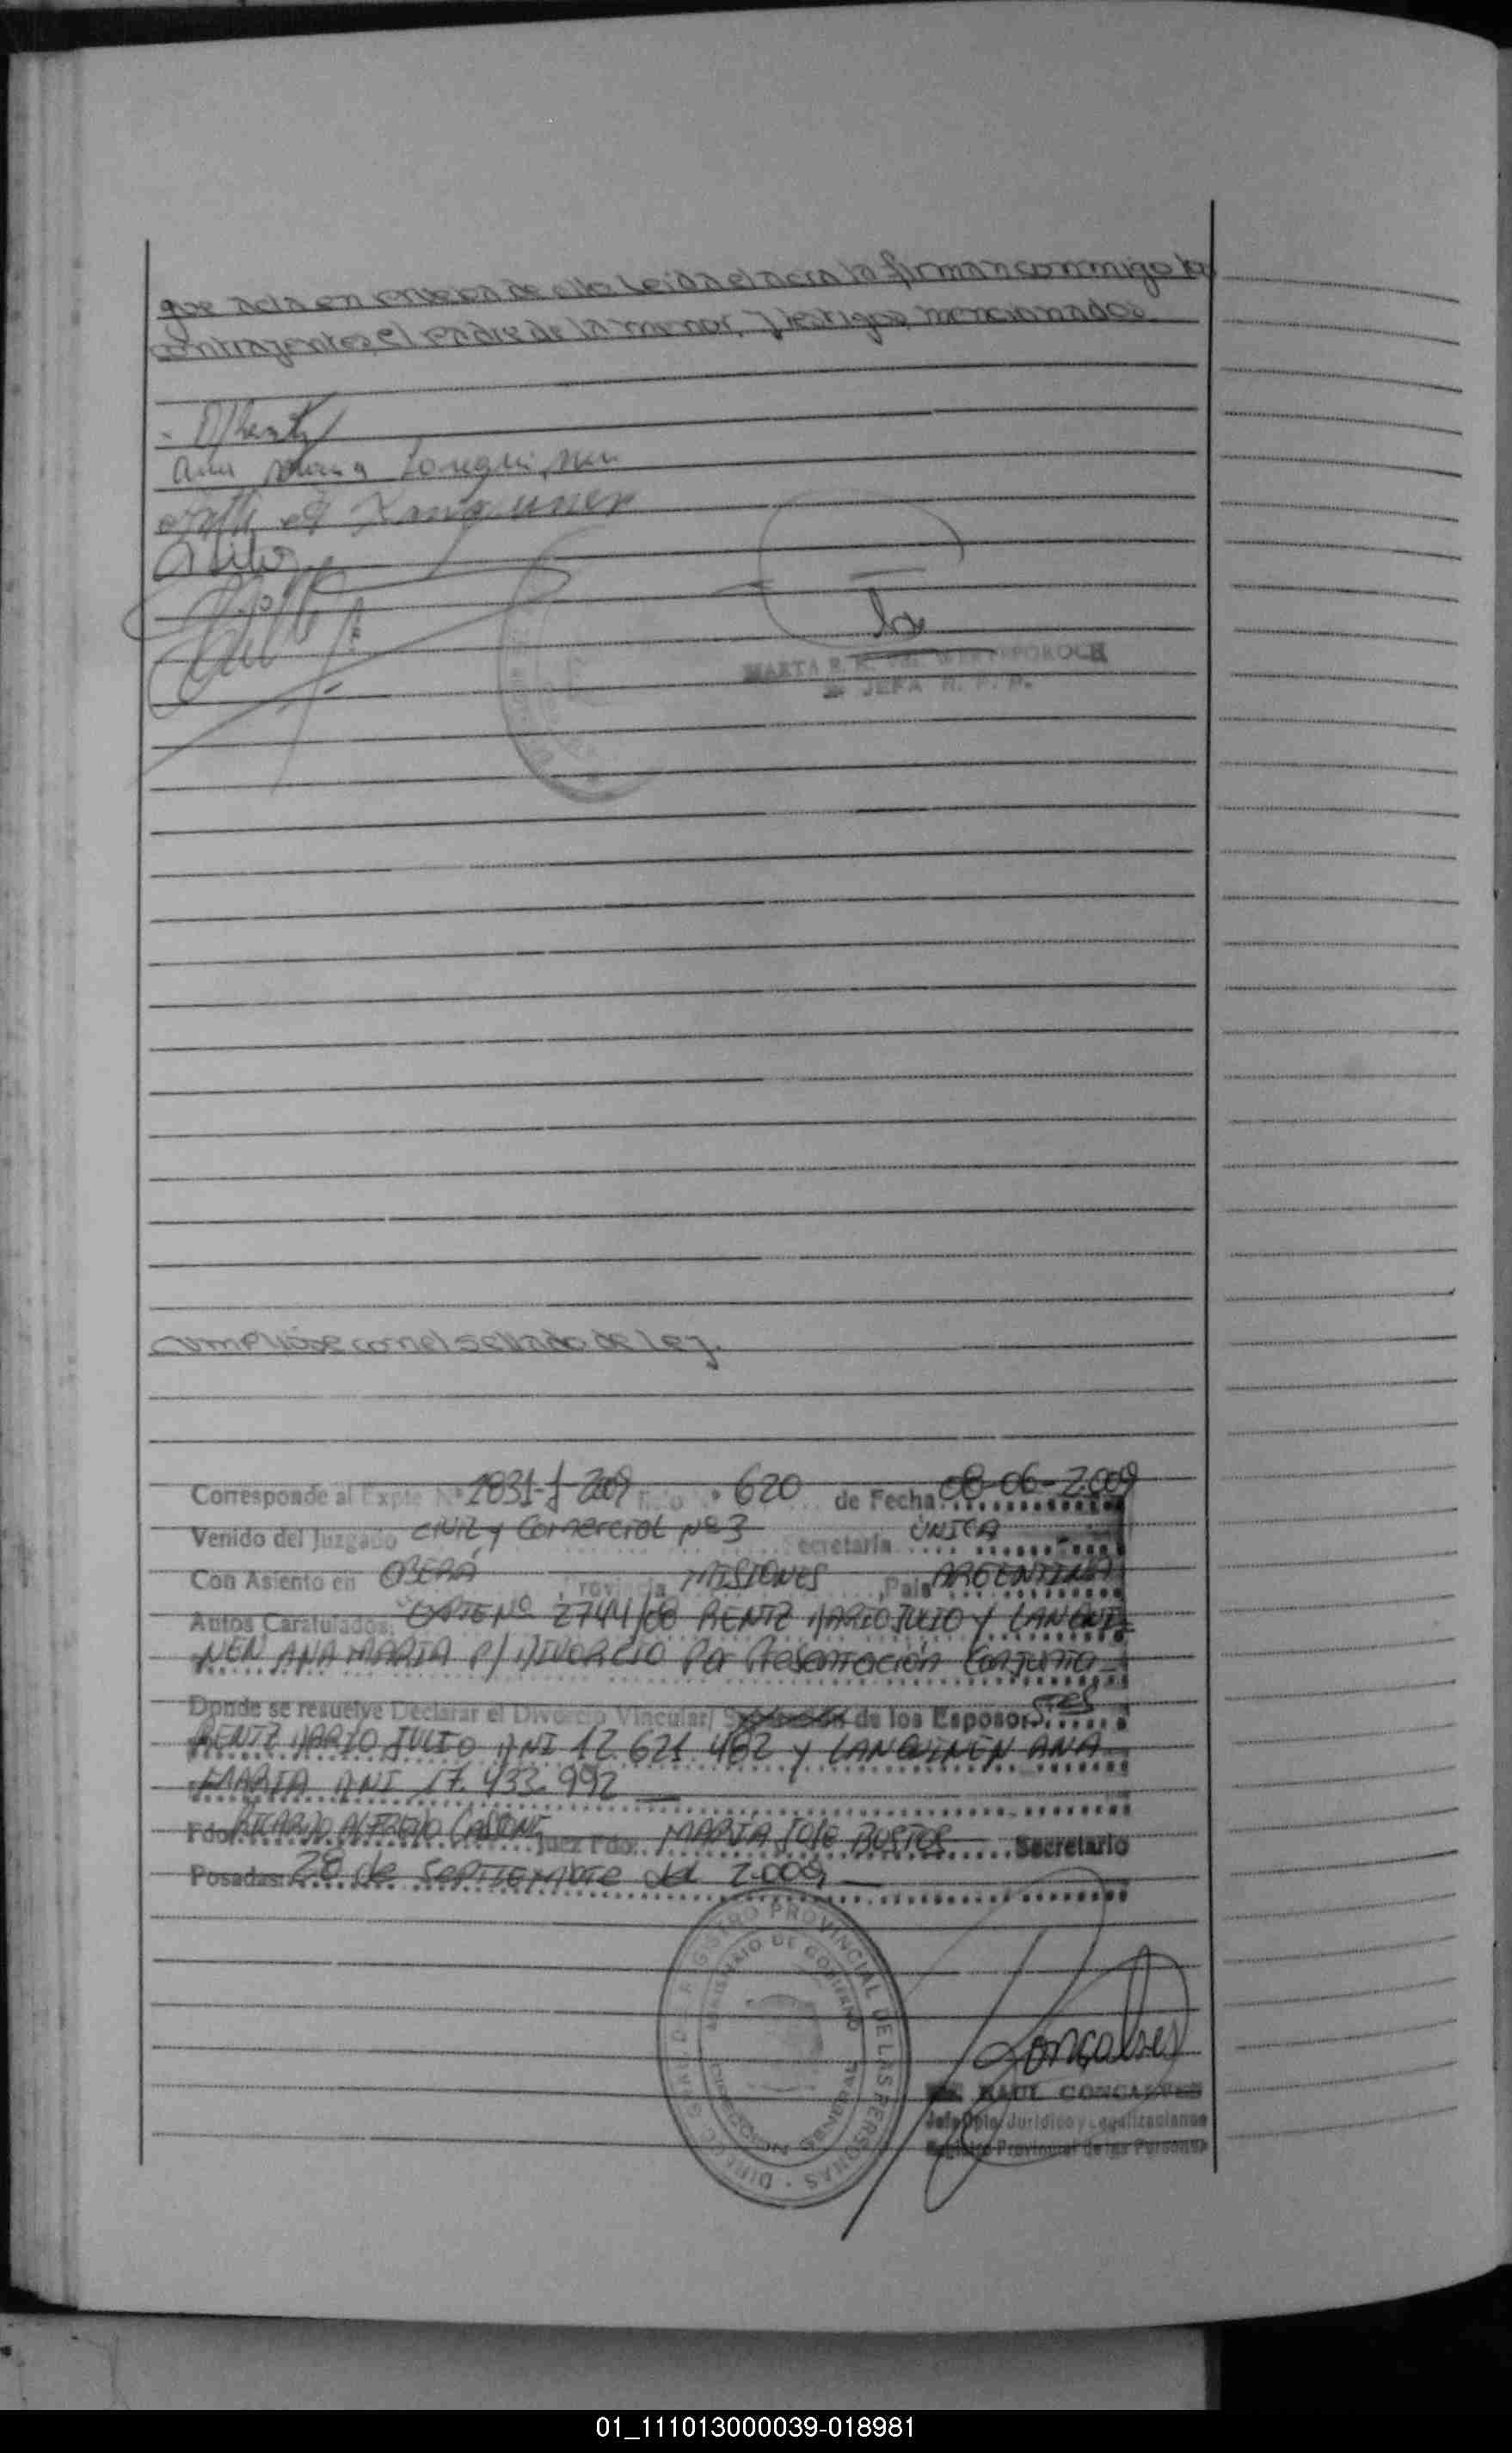 que acta en prueba de ello Leida el acta la firman conmigo los
contrayentes, el padre de la menor, y testigos mencionados.
Ana Maria
MARTA
JEFA R. P. P.
cumpliose con el sellado de Ley.
Corresponde al Expte Nº 2831-J-2009 620 de Fecha: 08-06-2009
Venido del Juzgado CIVIL y Comercial Nº 3 Secretaria ÚNICA
Con Asiento en OBERÁ, Provincia MISIONES, Pais ARGENTINA
Autos Caratulados: EXPTE Nº 2744/08 RENTZ MARIO JULIO Y LANGUI-
NEN ANA MARIA P/ DIVORCIO Por Presentación Conjunta
Donde se resuelve Declarar el Divorcio Vincular/ de los Esposos: Sres
RENTZ MARIO JULIO DNI 12.621.462 y LANGUINEN ANA
MARIA DNI 17.433.992
Fdo: RICARDO ALFREDO CASSONE Juez Fdo: MARIA JOSE BUSTOS Secretario
Posadas: 28 de SEPTIEMBRE del 2.009
DIRECC. GRAL. DEL REGISTRO PROVINCIAL DE LAS PERSONAS
MINISTERIO DE GOBIERNO
DIRECCION GENERAL
Gonçalves
RAUL GONCALVES
Jefe Dpto. Jurídico y Legalizaciones
Registro Provincial de las Personas
01_111013000039-018981